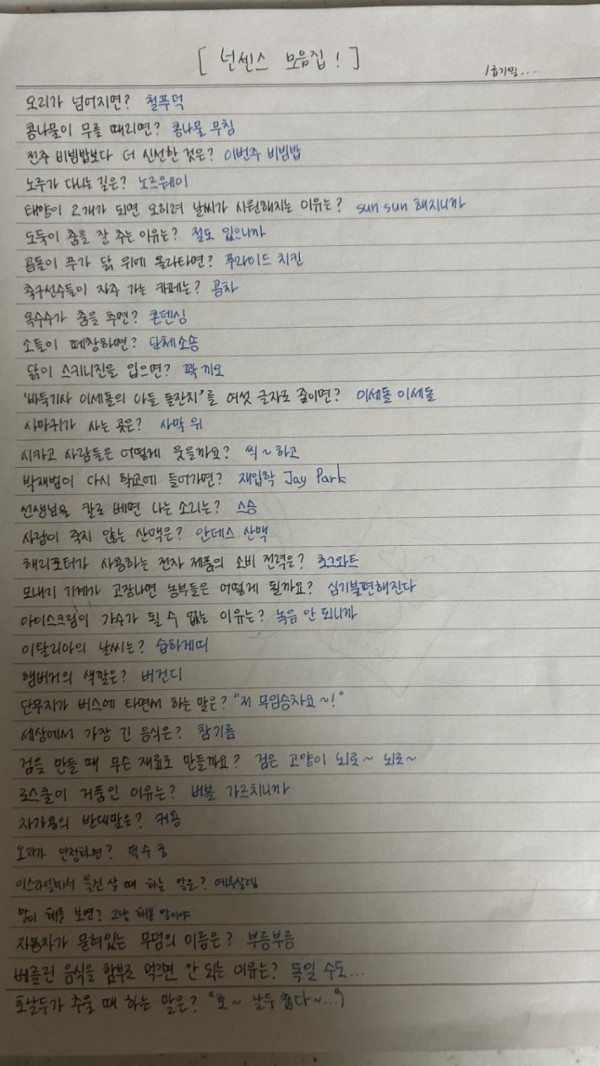 [ 넌센스 모음집! ]
1급기밀....
오리가 넘어지면? 철푸덕
콩나물이 무를 때리면? 콩나물 무침
전주 비빔밥보다 더 신선한 것은? 이번주 비빔밥
노루가 다니는 길은? 노르웨이
태양이 2개가 되면 오히려 날씨가 시원해지는 이유는? sun sun 해지니까
도둑이 춤을 잘 추는 이유는? 절도 있으니까
곰돌이 푸가 닭 위에 올라타면? 푸라이드 치킨
축구선수들이 자주 가는 카페는? 공차
옥수수가 춤을 추면? 콘덴싱
소들이 떼창하면? 단체소송
닭이 스키니진을 입으면? 꽉 끼오
'바둑기사 이세돌의 아들 돌잔치'를 여섯 글자로 줄이면? 이세돌 이세돌
사마귀가 사는 곳은? 사막 위
시카고 사람들은 어떻게 웃을까요? 씩~하고
박재범이 다시 학교에 들어가면? 재입학 Jay Park
선생님을 칼로 베면 나는 소리는? 스승
사람이 죽지 않는 산맥은? 안데스 산맥
해리포터가 사용하는 전자 제품의 소비 전력은? 호그와트
모내기 기계가 고장나면 농부들은 어떻게 될까요? 심기불편해진다
아이스크림이 가수가 될 수 없는 이유는? 녹음 안 되니까
이탈리아의 날씨는? 습하게띠
햄버거의 색깔은? 버건디
단무지가 버스에 타면서 하는 말은? "저 무임승차요~!"
세상에서 가장 긴 음식은? 참기름
검을 만들 때 무슨 재료로 만들까요? 검은 고양이 뇌로~ 뇌로~
로스쿨이 거품인 이유는? 버블 가르치니까
자가용의 반대말은? 커용
오리가 안정타면? 덕수궁
이스라엘에서 물건 살 때 하는 말은? 예루살렘
말이 해를 보면? 그냥 해본 말이야
자용자가 묻혀있는 무덤의 이름은? 부릉부릉
버블린 음식을 함부로 먹으면 안 되는 이유는? 독일 수도...
호날두가 추울 때 하는 말은? "호~ 날두 춥다~..."